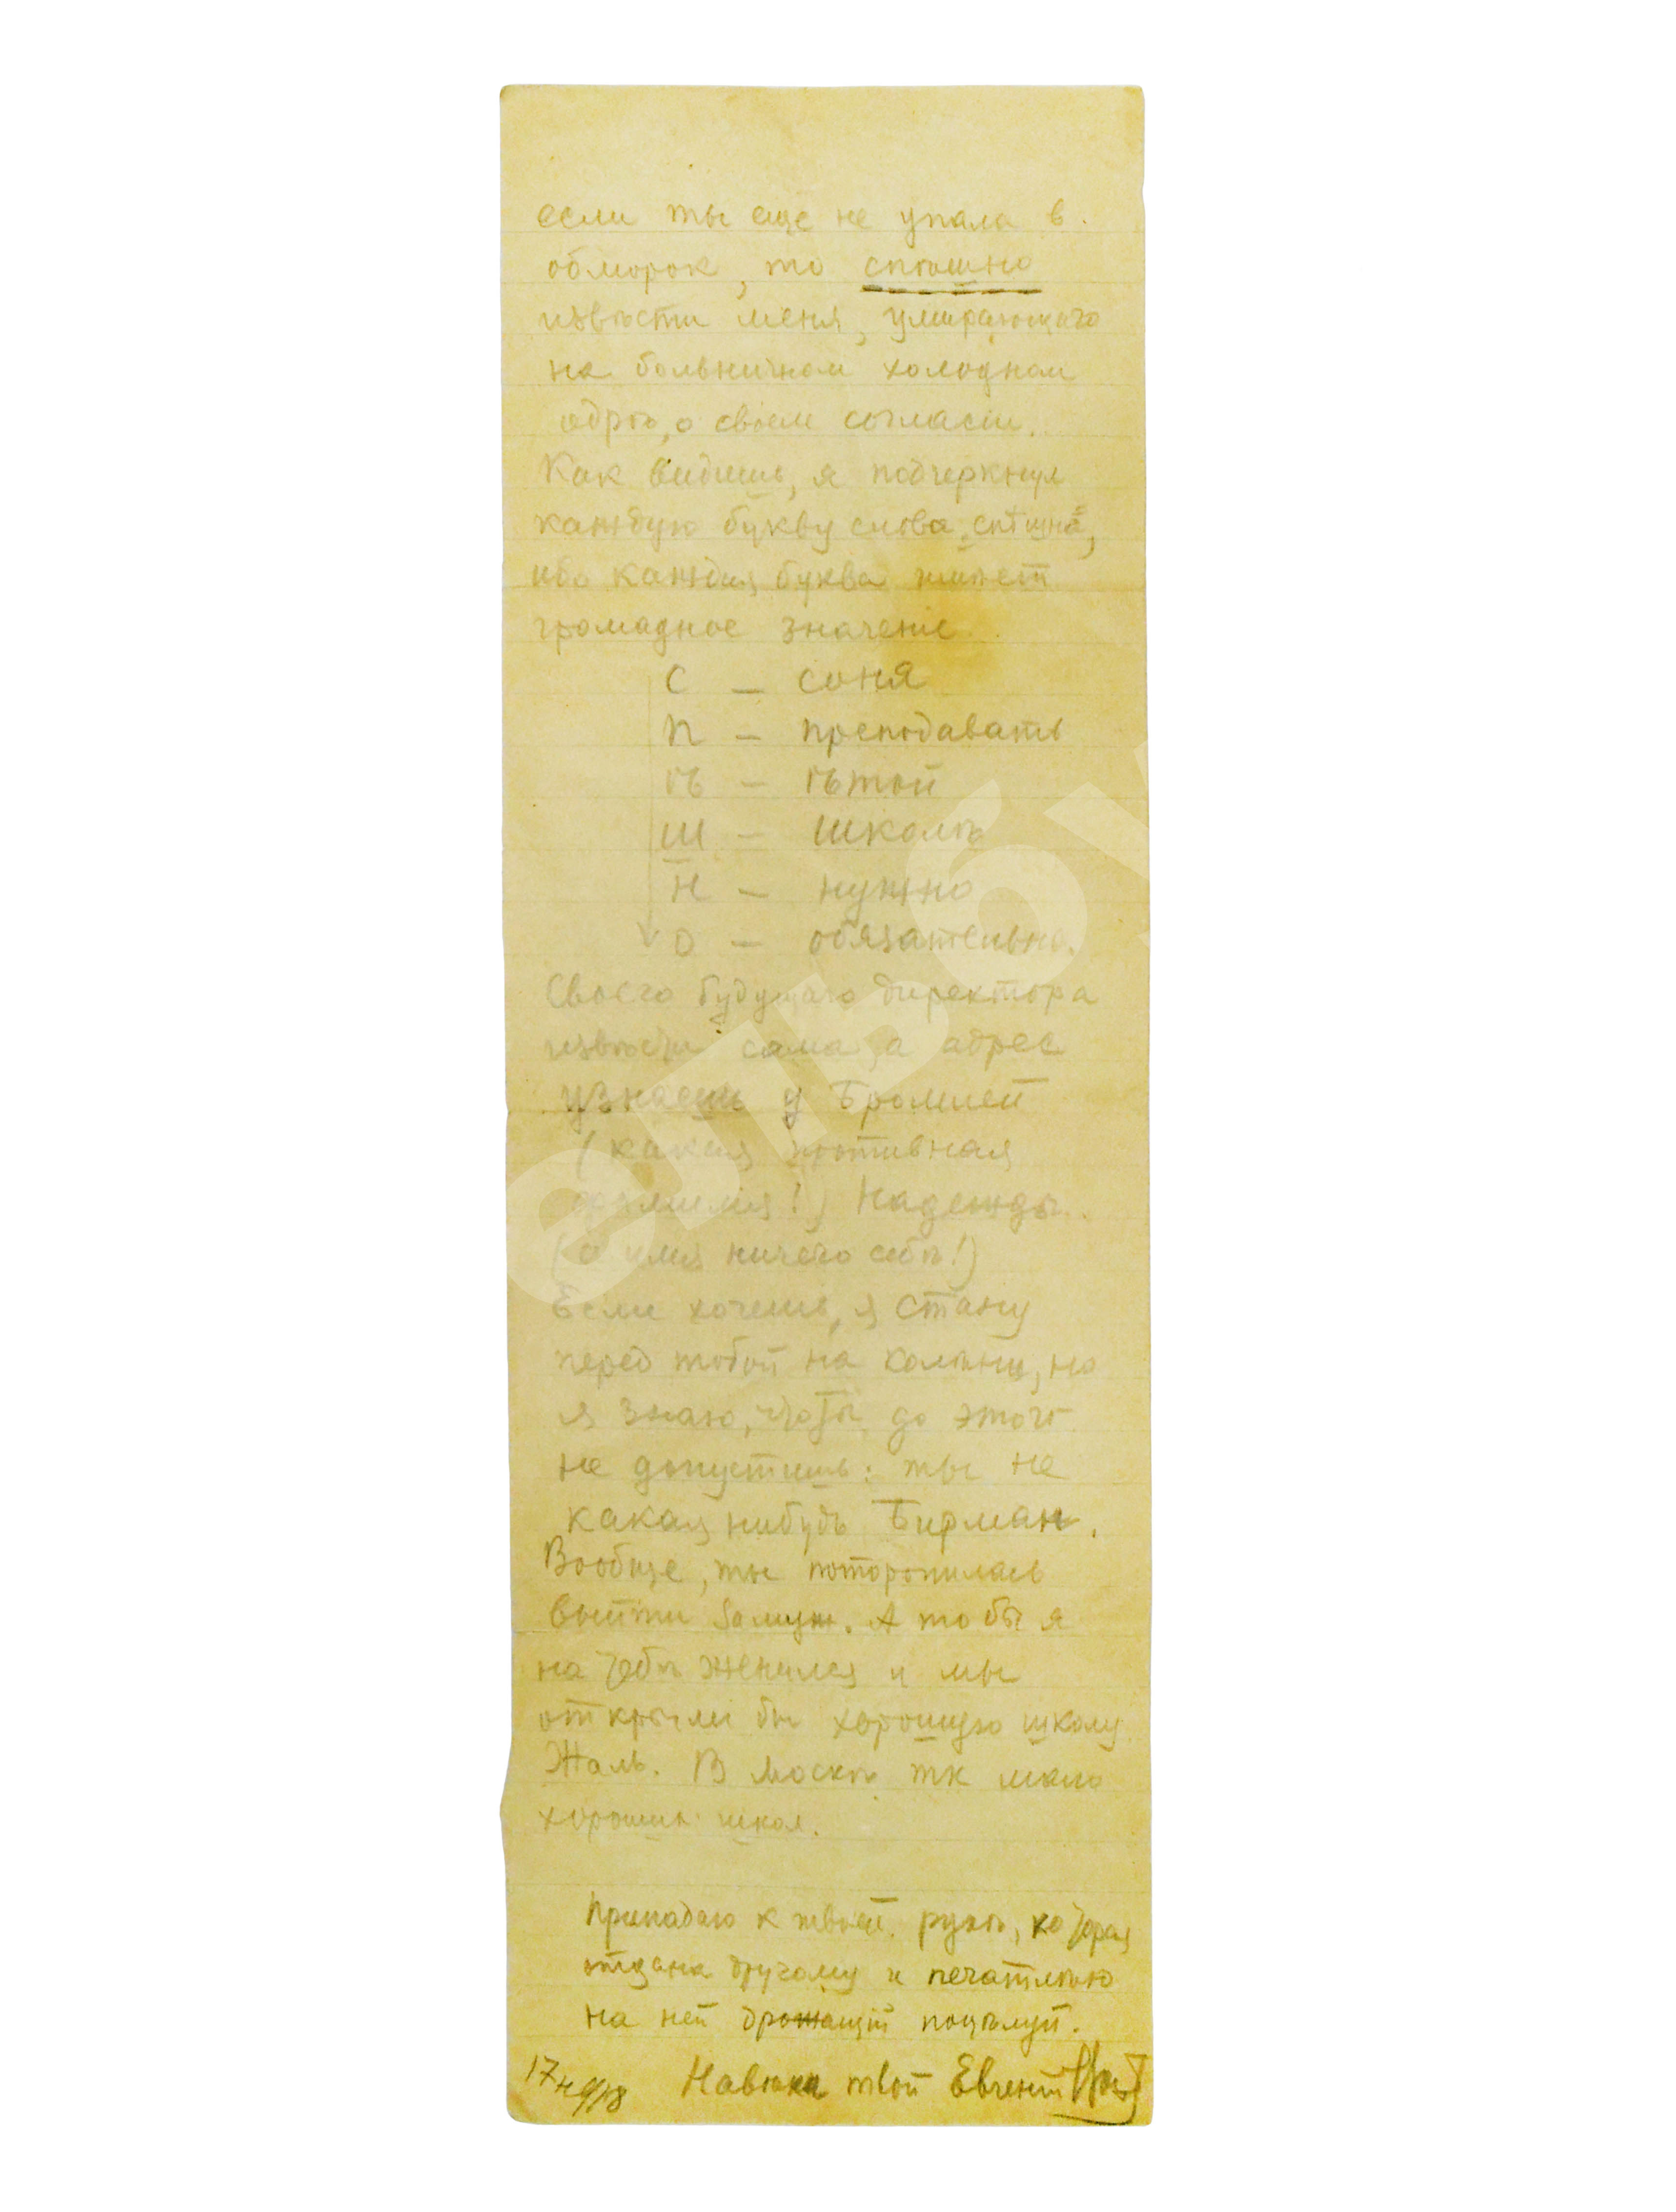 если ты еще не упала в
обморок, то спѣшно
извѣсти меня, умирающаго
на больничном холодном
одрѣ, о своем согласіи.
Как видишь, я подчеркнул
каждую букву слова спѣшно,
ибо каждая буква имѣет
громадное значеніе.
С — Соня
П — преподавать
Ѣ — ѣтой
Ш — школѣ
Н — нужно
О — обязательно.
Своего будущаго директора
извѣсти сама, а адрес
узнаешь у Бромлей
(какая противная
фамилия!) Надежды.
(а имя ничего себѣ!)
Если хочешь, я стану
перед тобой на колѣни, но
я знаю, что ты до этого
не допустишь: ты не
какая нибудь Бирман.
Вообще, ты поторопилась
выйти замуж. А то бы я
на тебѣ женился и мы
открыли бы хорошую школу
Жаль. В Москвѣ так мало
хороших школ.
Припадаю к твоей рукѣ, которая
отдана другому и печатлѣю
на ней дрожащій поцѣлуй.
17 918 Навѣки твой Евгеній
ельбу